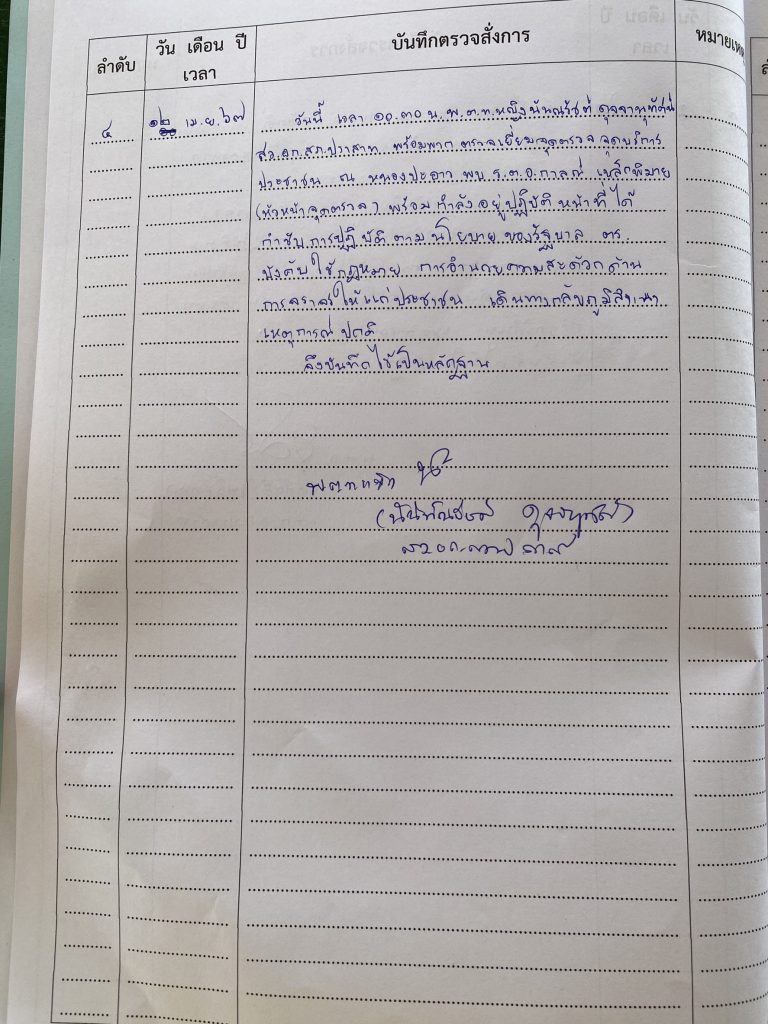 ลำดับ
วัน เดือน ปี
เวลา
บันทึกตรวจสั่งการ
หมายเหตุ
๔
๑๒ เม.ย.๖๗
วันนี้ เวลา ๑๐.๓๐ น. พ.ต.ท.หญิง
สว.อก.สภ.ปราสาท พร้อมพวก ตรวจเยี่ยมจุดตรวจ จุดบริการ
ประชาชน ณ หนองปะอาว พบ ร.ต.อ. เหล็กพิมาย
(หัวหน้าจุดตรวจ) พร้อมกำลังอยู่ปฏิบัติหน้าที่ ได้
กำชับการปฏิบัติตามนโยบาย ของรัฐบาล ตร
บังคับใช้กฎหมาย การอำนวยความสะดวกด้าน
การจราจรให้แก่ประชาชน เดินทางกลับภูมิลำเนา
เหตุการณ์ปกติ
จึงบันทึกไว้เป็นหลักฐาน